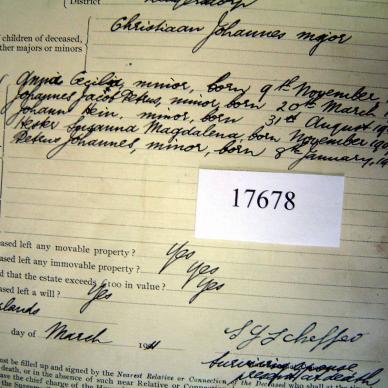 District
Christiaan Johannes major
of children of deceased,
ther majors or minors
Anna Cecilia, minor, born 9th November
Johannes Jacob Petrus, minor, born 20th March
Johann Hein, minor, born 31st August 19
Hester Susanna Magdalena, born November 190
Petrus Johannes, minor, born 8th January, 19
17678
ased left any movable property? Yes
ased left any immovable property? Yes
d that the estate exceeds £100 in value? Yes
ased left a will? Yes
lands
day of March 19
S J Scheffer
surviving spouse
ust be filled up and signed by the Nearest Relative or Connection of the Deceased who shall at the
death, or in the absence of such near Relative or Connection
ave the chief charge of the